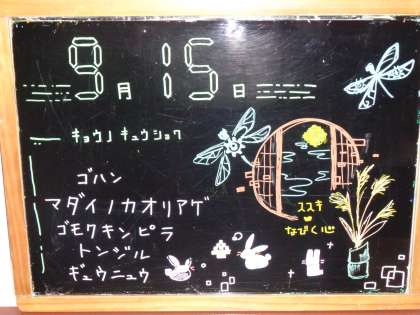 9月15日
キョウノキュウショク
ゴハン
マダイノカオリアゲ
ゴモクキンピラ
トンジル
ギュウニュウ
ススキ
なびく心